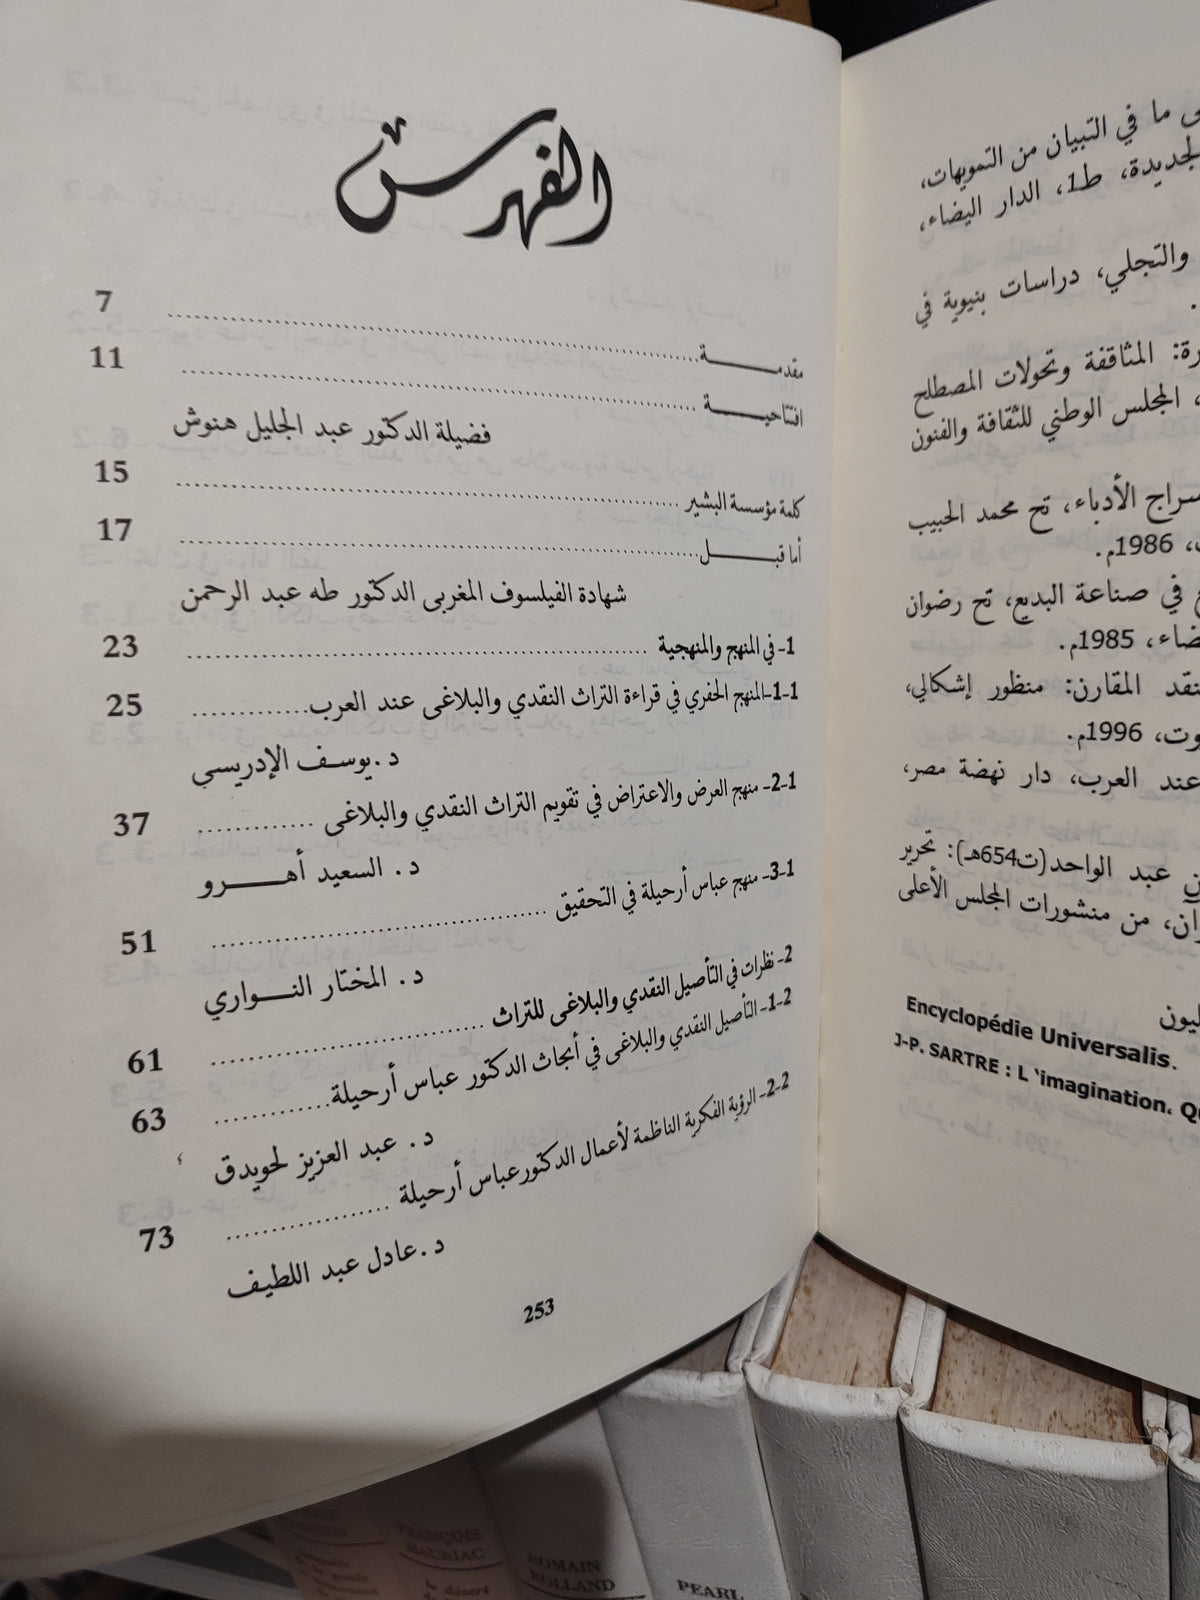 الفهرس
مقدمــــــة ........ 7
افتتاحيــــــة ........ 11
فضيلة الدكتور عبد الجليل هنوش
كلمة مؤسسة البشير ........ 15
أما قبــــــل ........ 17
شهادة الفيلسوف المغربي الدكتور طه عبد الرحمن
1- في المنهج والمنهجية ........ 23
1-1-المنهج الحفري في قراءة التراث النقدي والبلاغي عند العرب ........ 25
د.يوسف الإدريسي
2-1- منهج العرض والاعتراض في تقويم التراث النقدي والبلاغي ........ 37
د. السعيد أهــــــرو
3-1- منهج عباس أرحيلة في التحقيق ........ 51
د. المختار النــــواري
2- نظرات في التأصيل النقدي والبلاغي للتراث ........ 61
1-2- التأصيل النقدي والبلاغي في أبحاث الدكتور عباس أرحيلة ........ 63
د. عبد العزيز لحويدق
2-2- الرؤية الفكرية الناظمة لأعمال الدكتورعباس أرحيلة ........ 73
د.عادل عبد اللطيف
253
ما في التبيان من التمويهات،
الجديدة، ط1، الدار البيضاء،
والتجلي، دراسات بنيوية في
المثاقفة وتحولات المصطلح
المجلس الوطني للثقافة والفنون
الأدباء، تح محمد الحبيب
، 1986م.
في صناعة البديع، تح رضوان
، 1985م.
المقارن: منظور إشكالي،
، 1996م.
عند العرب، دار نهضة مصر،
عبد الواحد(ت654هـ): تحرير
، من منشورات المجلس الأعلى
Encyclopédie Universalis.
J-P. SARTRE : L 'imagination.
FRANÇOIS
MAURIAC
le désert
ROMAIN
ROLLAND
PEARL